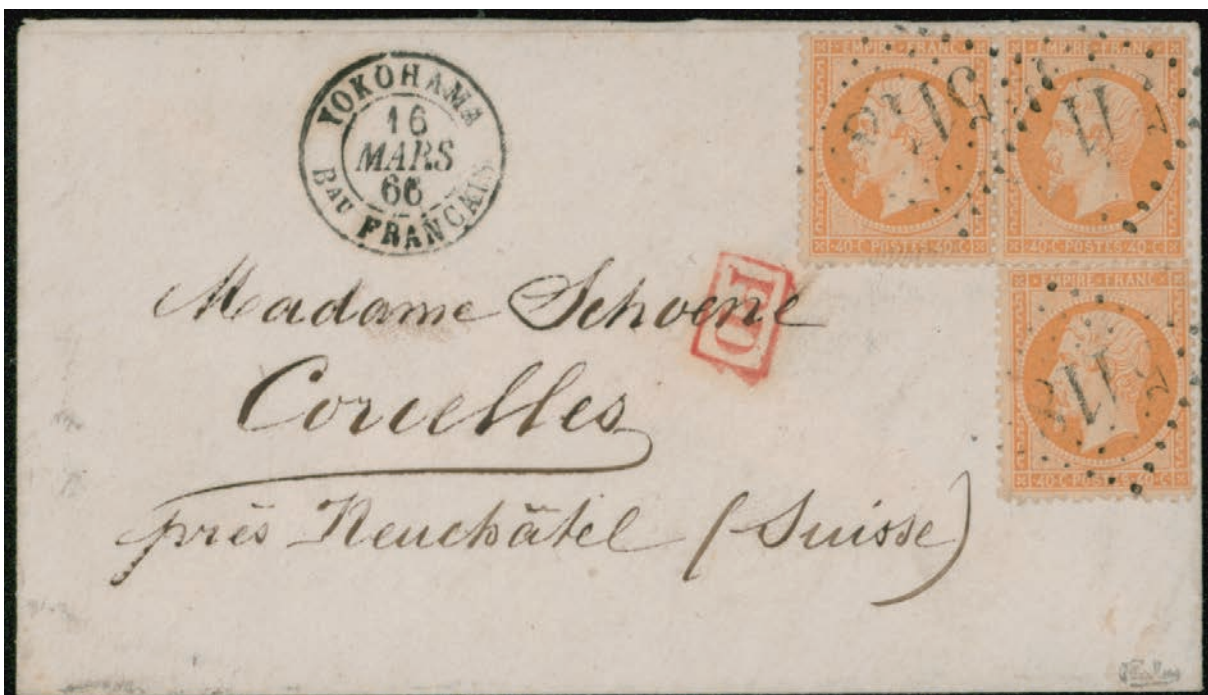 YOKOHAMA
16
MARS
66
Bau FRANCAIS
EMPIRE FRANC
EMPIRE FRANC
5118
40 C POSTES 40 C
40 C POSTES 40 C
PD
EMPIRE FRANC
5118
40 C POSTES 40 C
Madame Schoene
Corcelles
près Neuchâtel (Suisse)